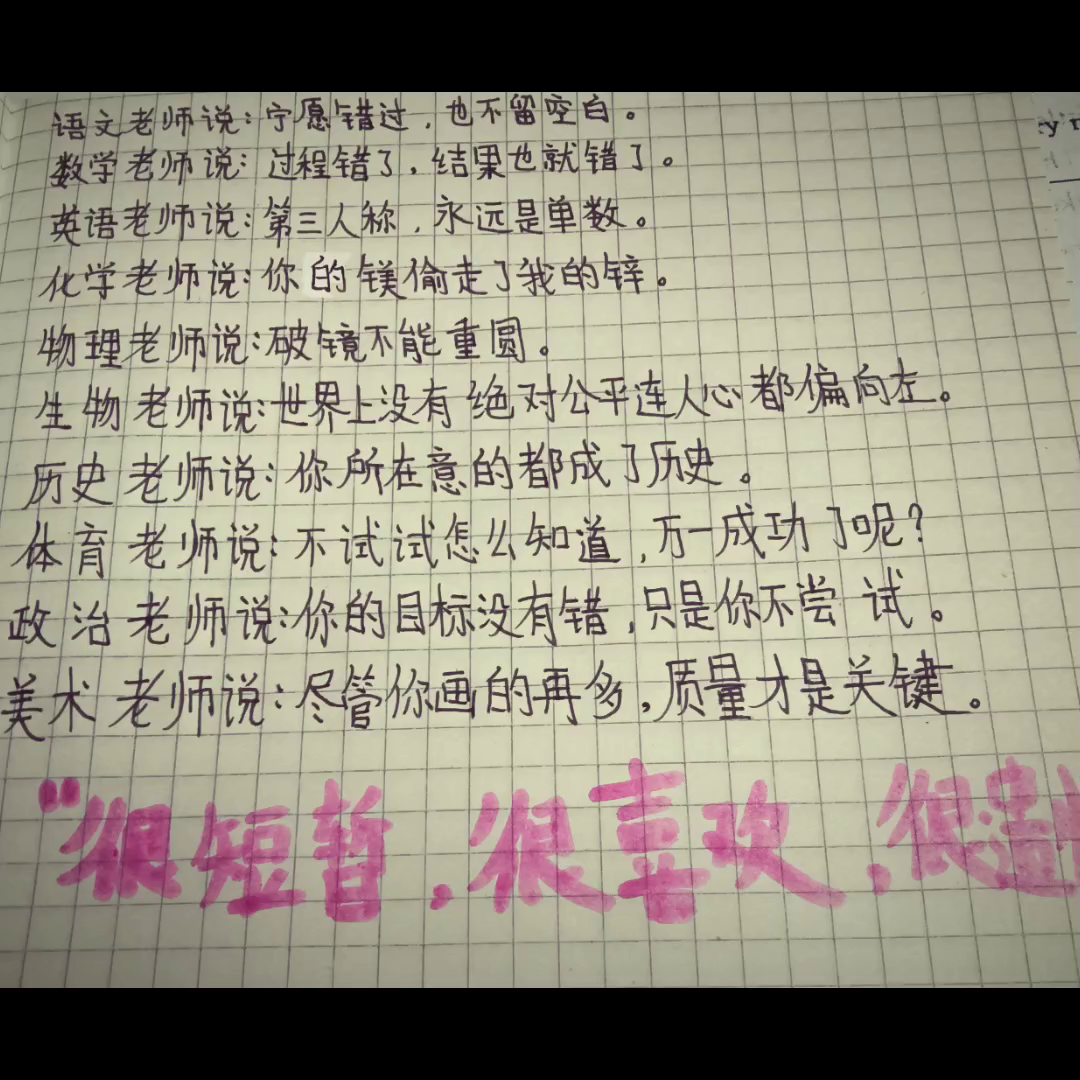 语文老师说：宁愿错过，也不留空白。
数学老师说：过程错了，结果也就错了。
英语老师说：第三人称，永远是单数。
化学老师说：你的镁偷走了我的锌。
物理老师说：破镜不能重圆。
生物老师说：世界上没有绝对公平连人心都偏向左。
历史老师说：你所在意的都成了历史。
体育老师说：不试试怎么知道，万一成功了呢？
政治老师说：你的目标没有错，只是你不尝试。
美术老师说：尽管你画的再多，质量才是关键。
“很短暂，很喜欢，很遗